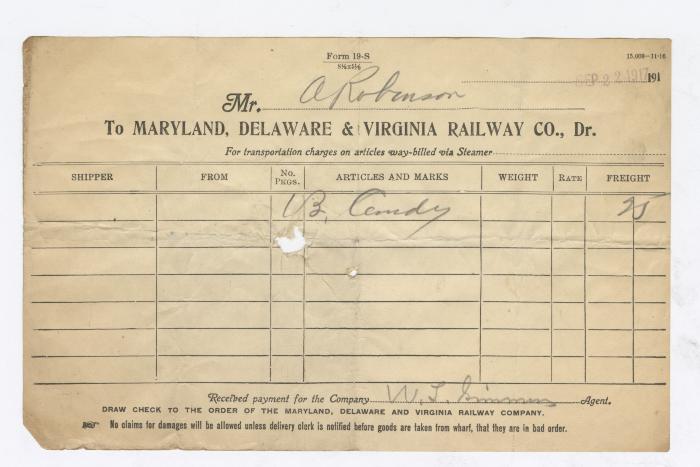 Form 19-S
8½x5½
15,000-11-16
SEP 22 1917 191
Mr. A Robinson
To MARYLAND, DELAWARE & VIRGINIA RAILWAY CO., Dr.
For transportation charges on articles way-billed via Steamer
SHIPPER FROM No. PKGS. ARTICLES AND MARKS WEIGHT RATE FREIGHT
B. Candy 25
Received payment for the Company W. T. Simmons Agent.
DRAW CHECK TO THE ORDER OF THE MARYLAND, DELAWARE AND VIRGINIA RAILWAY COMPANY.
No claims for damages will be allowed unless delivery clerk is notified before goods are taken from wharf, that they are in bad order.